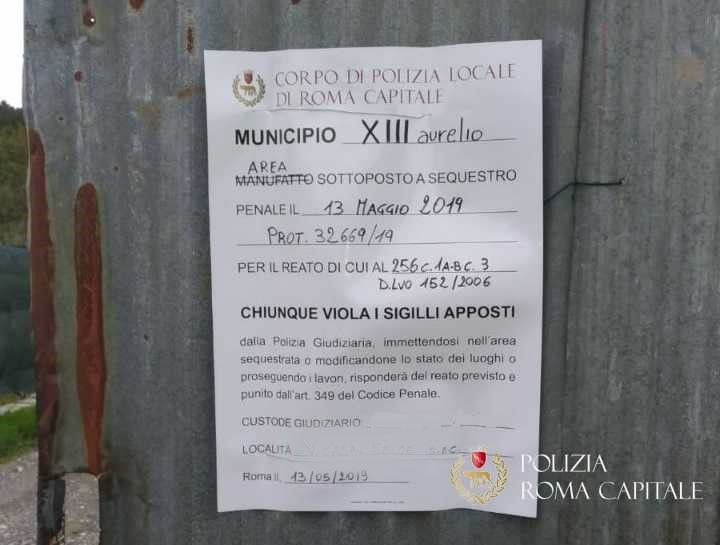 CORPO DI POLIZIA LOCALE
DI ROMA CAPITALE
MUNICIPIO XIII aurelio
AREA
MANUFATTO SOTTOPOSTO A SEQUESTRO
PENALE IL 13 MAGGIO 2019
PROT. 32669/19
PER IL REATO DI CUI AL 256 C. 1 A-B C. 3
D.LVO 152/2006
CHIUNQUE VIOLA I SIGILLI APPOSTI
dalla Polizia Giudiziaria, immettendosi nell'area
sequestrata o modificandone lo stato dei luoghi o
proseguendo i lavori, risponderà del reato previsto e
punito dall'art. 349 del Codice Penale.
CUSTODE GIUDIZIARIO
LOCALITÀ
Roma lì, 13/05/2019
POLIZIA
ROMA CAPITALE